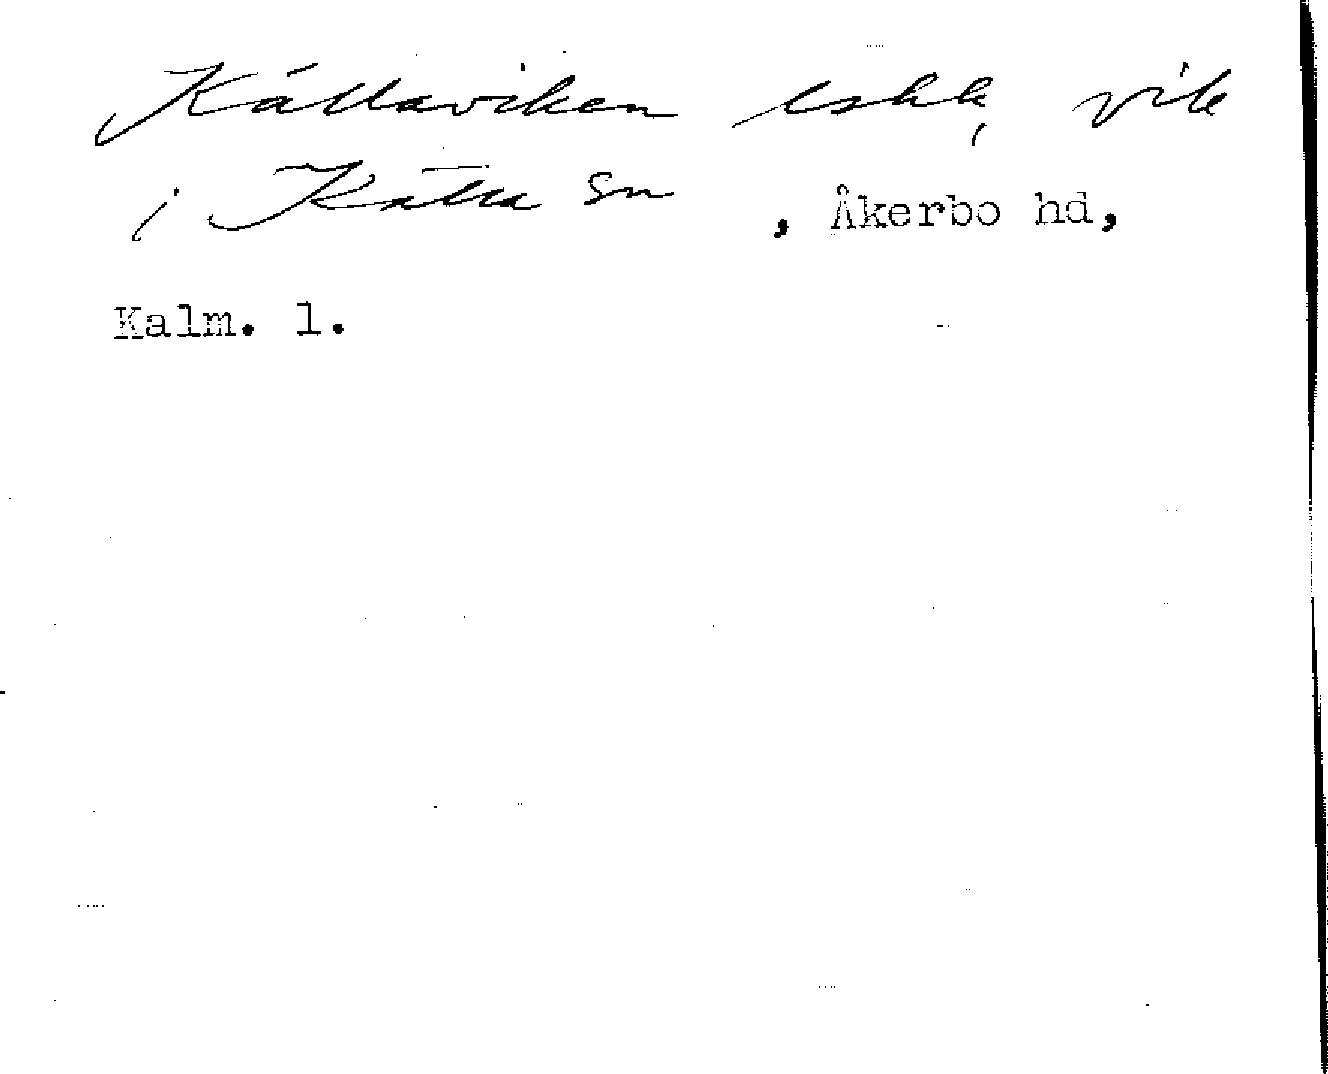 Källaviken eskk, vik
i Källa sn , Åkerbo hd,
Kalm. l.